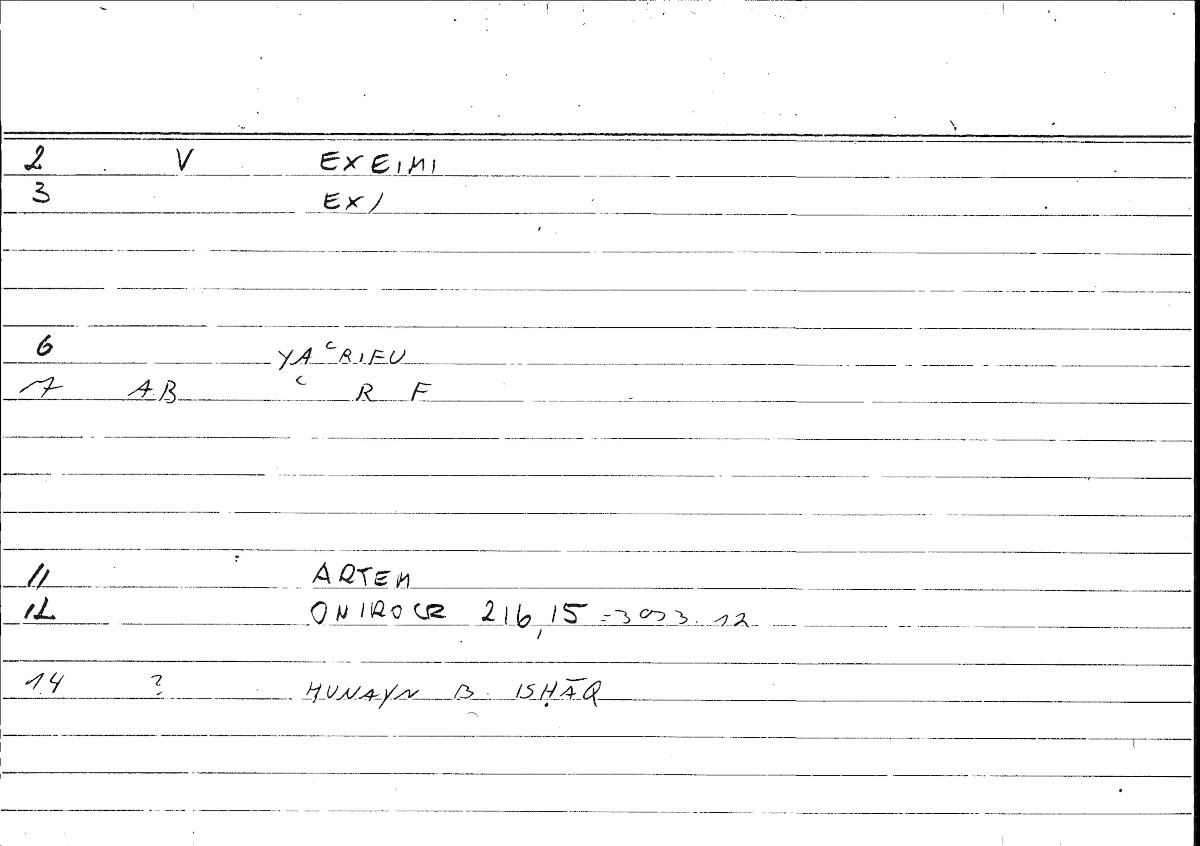 2 V EXEIMI
3 EX/
6 YAʿRIFU
7 AB ʿ R F
11 ARTEM
12 ONIROCR 216,15 = 12
14 ? HUNAYN B. ISḤĀQ